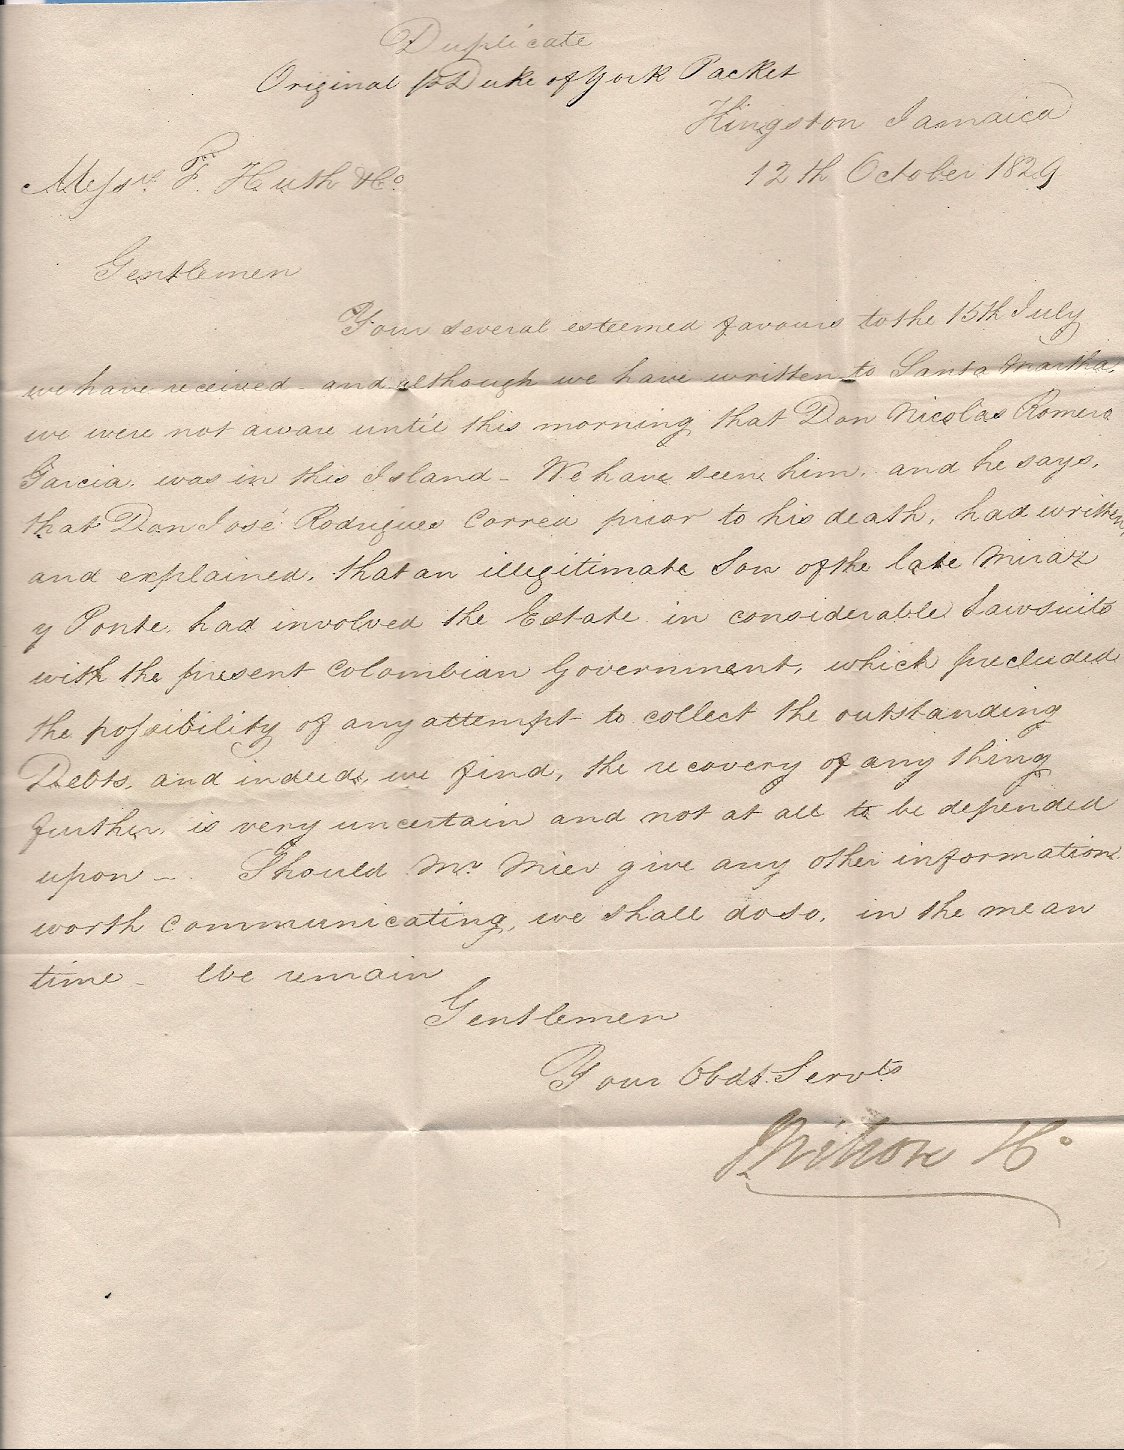 Duplicate
Original p Duke of York Packet
Kingston Jamaica
12th October 1829
Messrs F. Huth & Co
Gentlemen
Your several esteemed favours to the 15th July
we have received - and although we have written to Santa Martha,
we were not aware until this morning that Don Nicolas Romero
Garcia. was in this Island - We have seen him. and he says,
that Don José Rodrigues Correa prior to his death, had written,
and explained. that an illegitimate Son of the late
y Ponte. had involved the Estate in considerable Lawsuits
with the present Colombian Government, which precluded
the possibility of any attempt to collect the outstanding
Debts, and indeed we find, the recovery of any thing
further, is very uncertain and not at all to be depended
upon - Should Mr. Mier give any other information
worth communicating, we shall do so, in the mean
time - We remain
Gentlemen
Your Obdt. Servts
Co